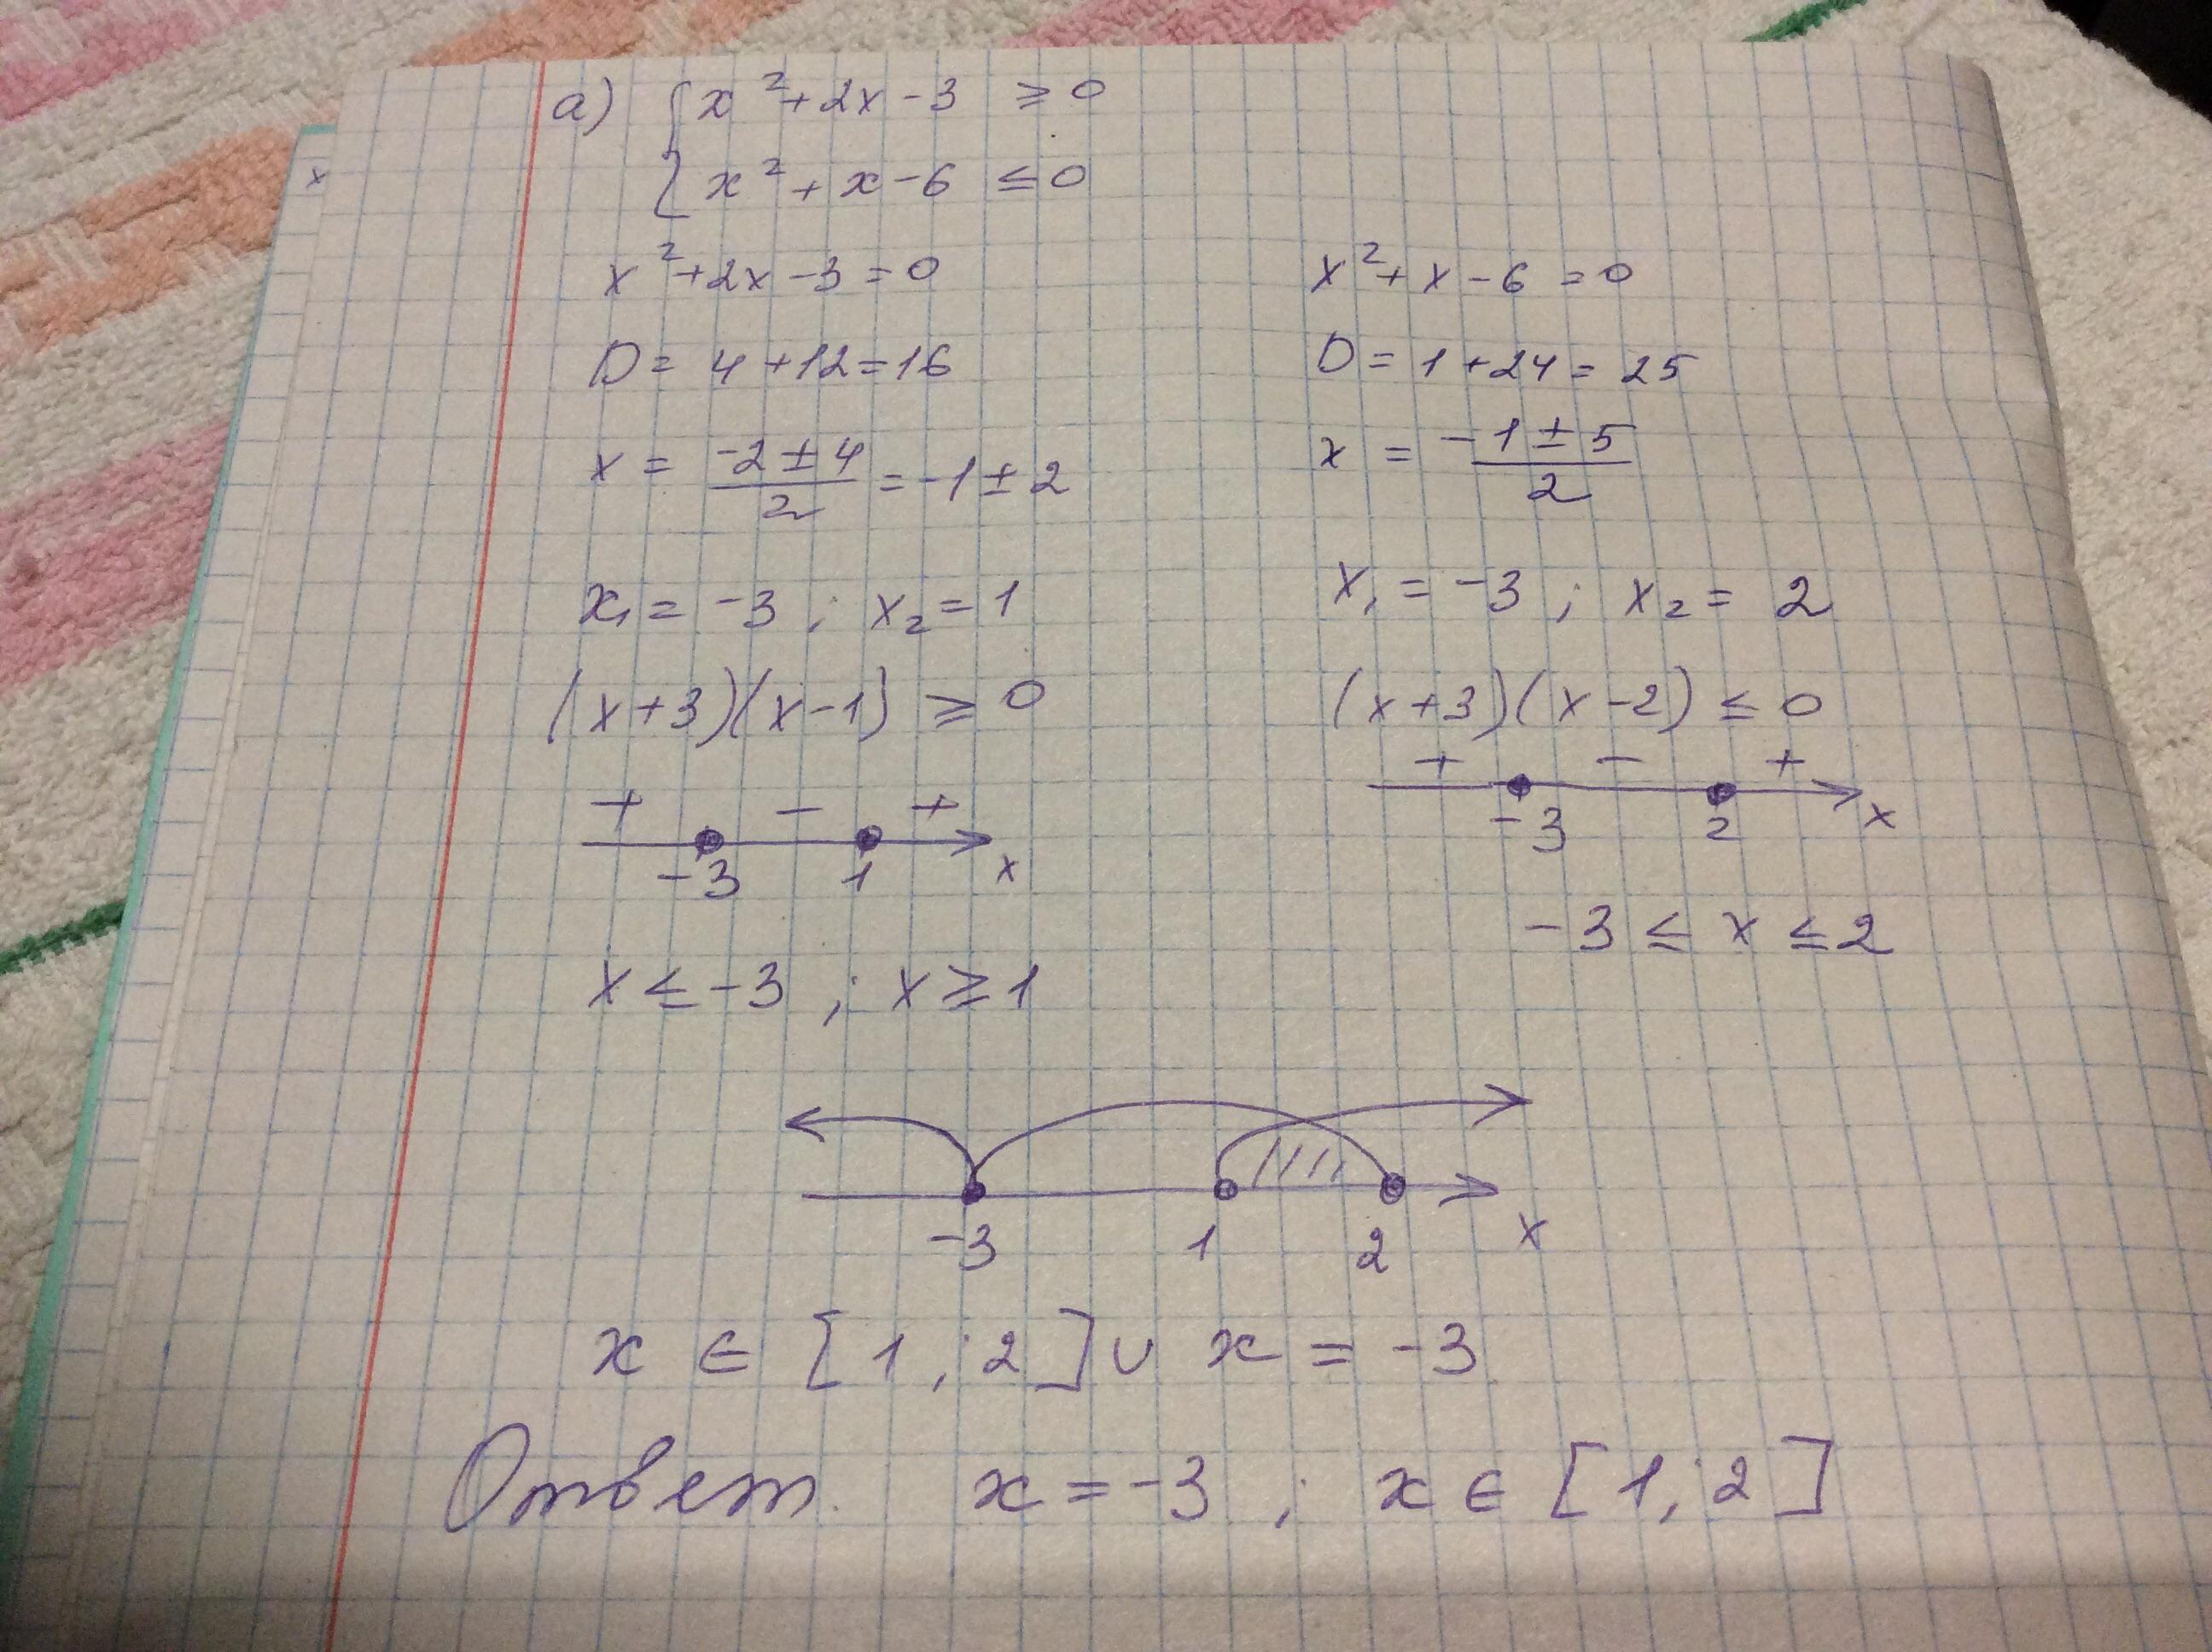 а) { x² + 2x - 3 ≥ 0
x² + x - 6 ≤ 0
x² + 2x - 3 = 0
D = 4 + 12 = 16
x = (-2 ± 4)/2 = -1 ± 2
x₁ = -3 ; x₂ = 1
(x+3)(x-1) ≥ 0
+ - +
-3 1 x
x ≤ -3 ; x ≥ 1
x² + x - 6 = 0
D = 1 + 24 = 25
x = (-1 ± 5)/2
x₁ = -3 ; x₂ = 2
(x+3)(x-2) ≤ 0
+ - +
-3 2 x
-3 ≤ x ≤ 2
-3 1 2 x
x ∈ [1; 2] ∪ x = -3
Ответ. x = -3 ; x ∈ [1; 2]
x